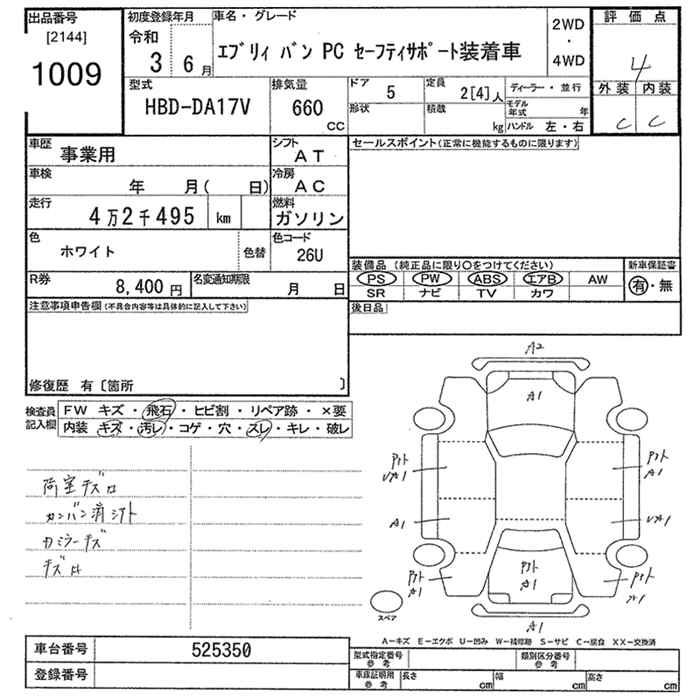 出品番号
[2144]
1009
初度登録年月
令和
3 6月
車名・グレード
エブリィ バン PC セーフティサポート装着車
2WD
・
4WD
評価点
4
外装 内装
C C
型式
HBD-DA17V
排気量
660
CC
ドア
5
定員
2[4]人
形状
積載
kg
ディーラー・並行
モデル年式 年
ハンドル 左・右
車歴
事業用
シフト
AT
車検
年 月( 日)
冷房
AC
走行
4万2千495 km
燃料
ガソリン
色
ホワイト
色替
色コード
26U
R券
8,400円
名変通知期限
月 日
セールスポイント(正常に機能するものに限ります)
装備品(純正品に限り〇をつけてください)
新車保証書
PS PW ABS エアB AW
SR ナビ TV カワ
有・無
後日品
注意事項申告欄(不具合内容等は具体的に記入して下さい)
修復歴 有〔箇所 〕
検査員記入欄
FW キズ・飛石・ヒビ割・リペア跡・×要
内装 キズ・汚レ・コゲ・穴・スレ・キレ・破レ
荷室キズ
カンバン済
カミラーキズ
キズ
A2
A1
A1
A1
A1
A1
A1
A1
スペア
A-キズ E-エクボ U-凹み W-補修跡 S-サビ C-腐食 XX-交換済
車台番号
525350
登録番号
型式指定番号
参考
類別区分番号
参考
車庫証明用
参考
長さ cm
幅 cm
高さ cm